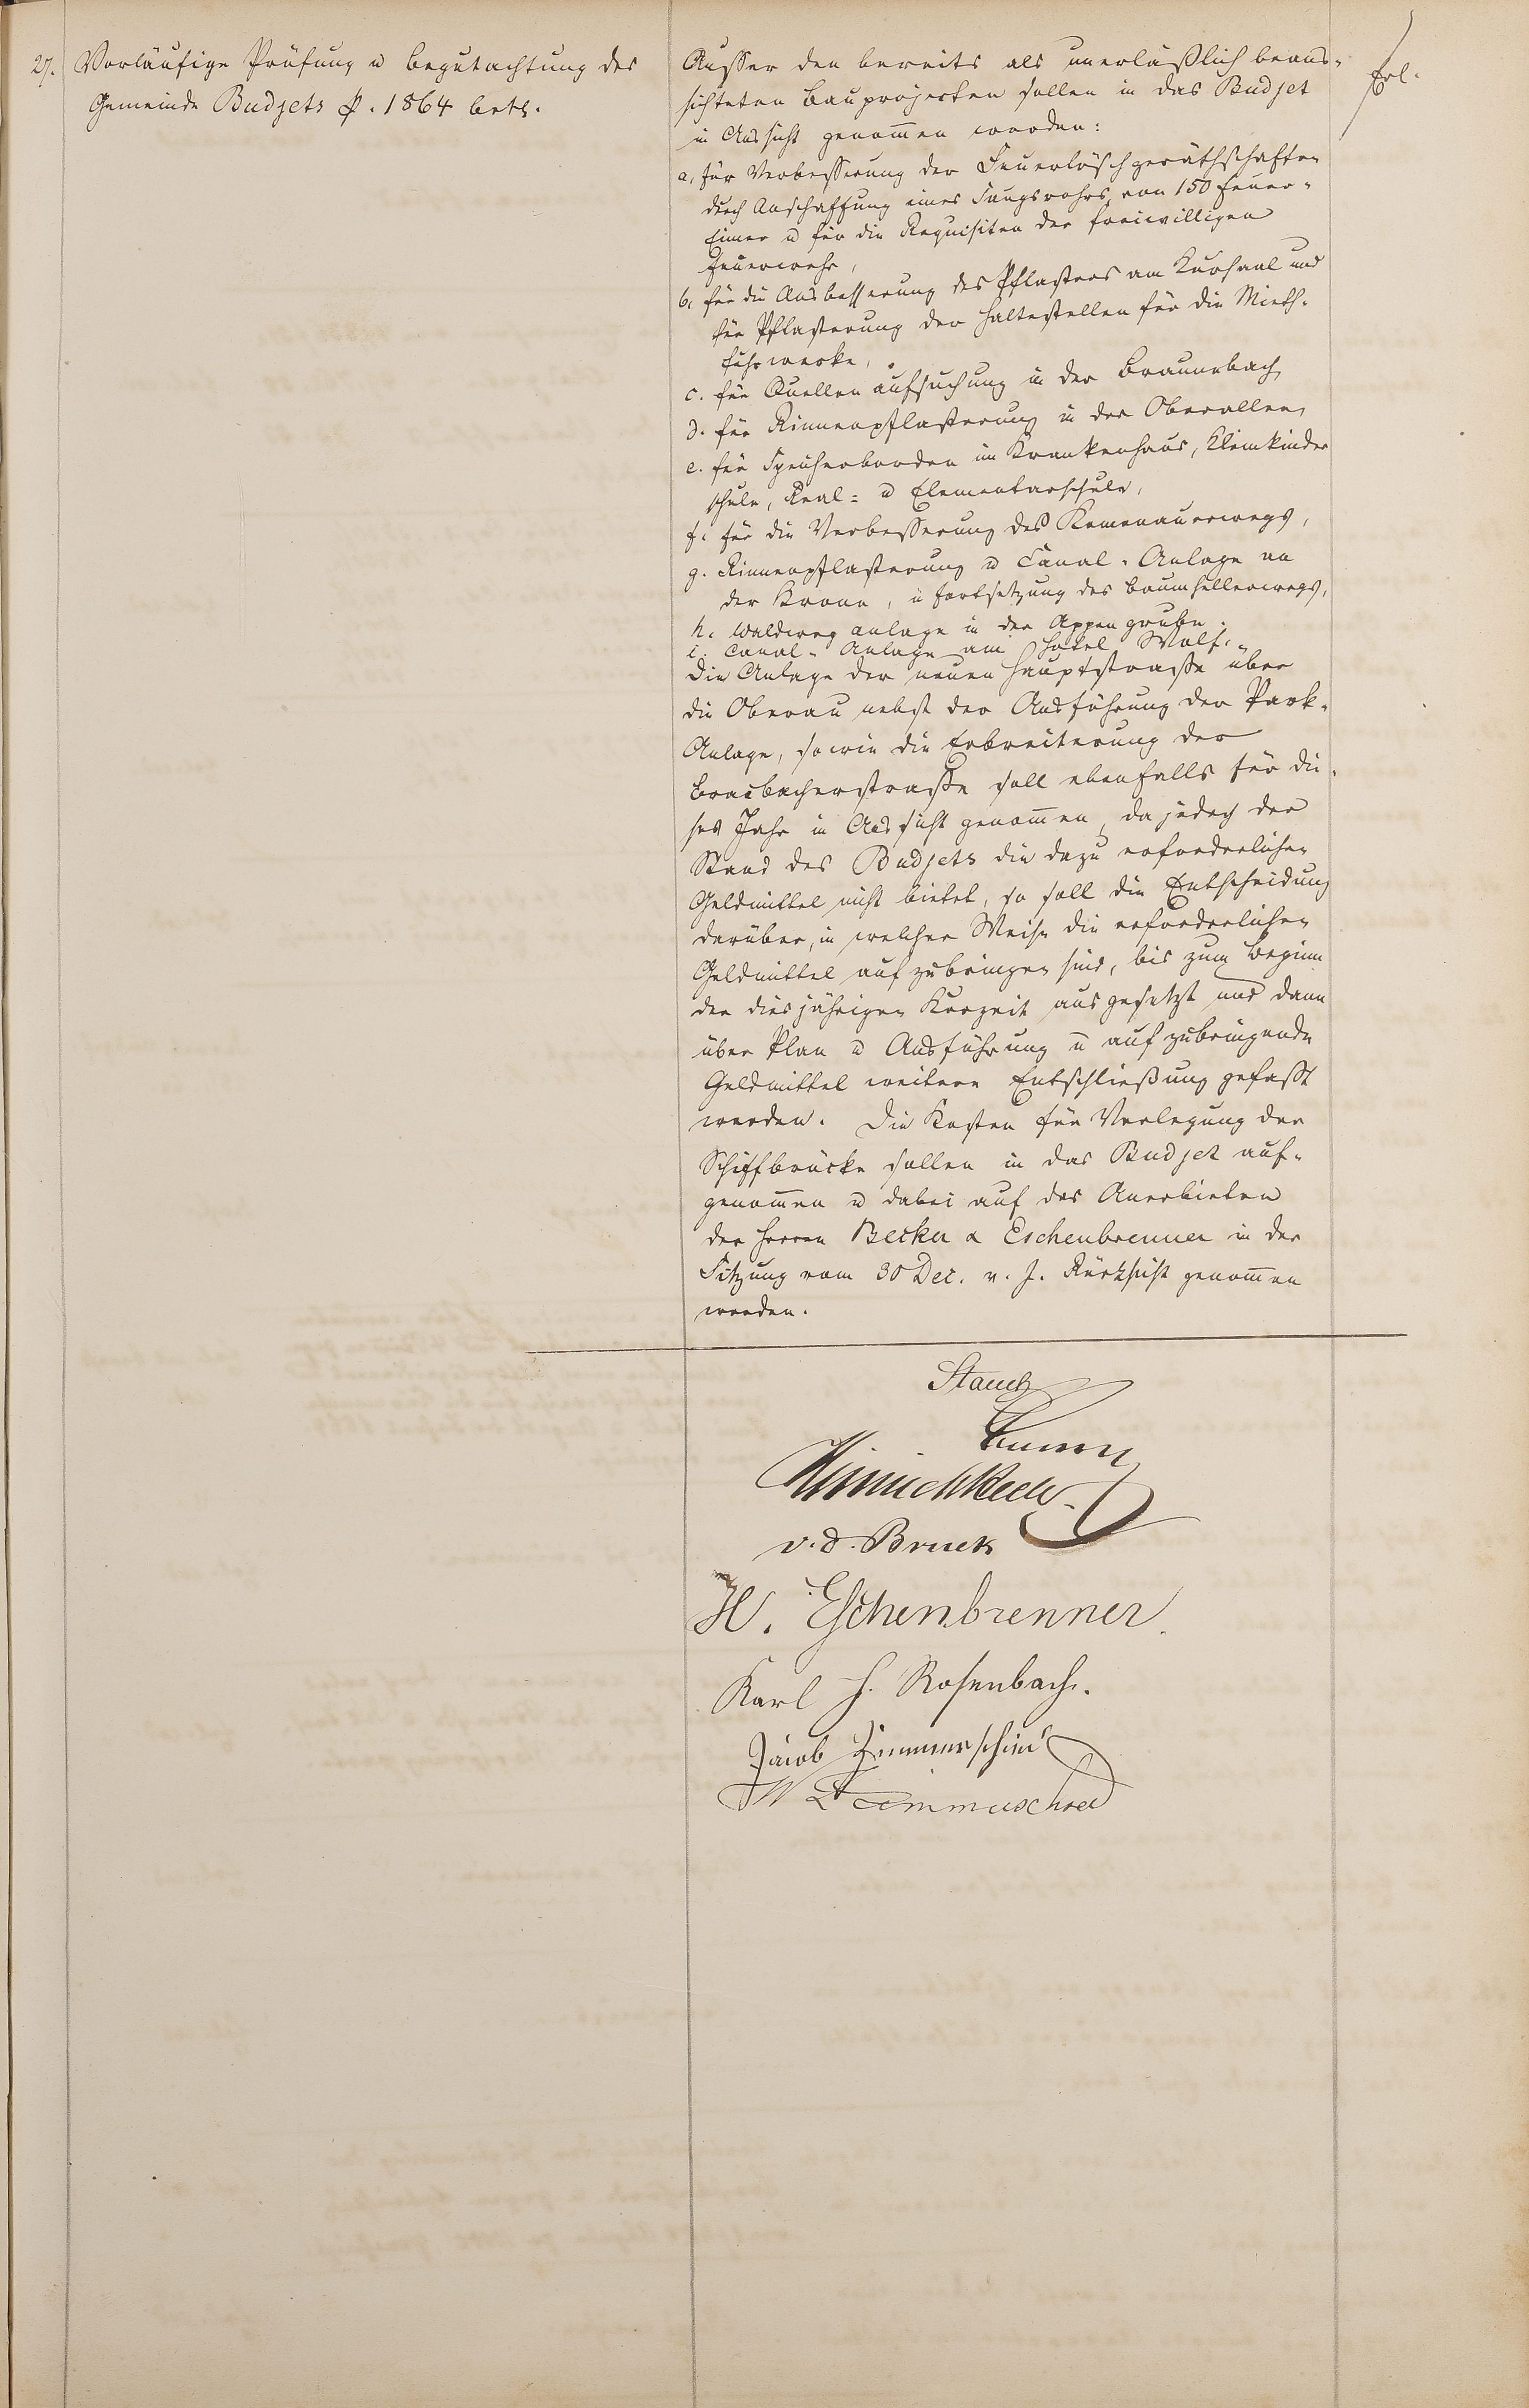 27. Vorläufige Prüfung u Begutachtung des
Gemeinde Budjets p. 1864 betr.
Ausser den bereits als unerläßlich beaus-
sichteten Bauprojecten sollen in das Budjet
in Aussicht genom̄en werden:
a, für Verbesserung der Feuerlöschgeräthschaften
durch Anschaffung eines Saugrohrs, von 150 Feuer-
Eimer u für die Requisiten der freiwilligen
Feuerwehr,
b, für die Ausbesserung des Pflasters am Kursaal und
für Pflasterung der Haltestellen für die Mieth-
fuhrwerke,
c. für Quellenaufsuchung in der Braunebach,
d. für Rinnenpflasterung in der Oberallee,
e. für Speicherborden im Krankenhaus, Kleinkinder
schule, Real- u Elementarschule,
f. für die Verbesserung des Kemenauerwegs,
g. Rinnenpflasterung u Canal-Anlage an
der Krone, u Fortsetzung des Baumhellerwegs,
h. Waldweg anlage in der Appengrube.
i. Canal-Anlage am Hotel Wolf.-
Die Anlage der neuen Hauptstrasse über
die Oberau nebst der Ausführung der Park-
Anlage, sowie die Erbreiterung der
Braubacherstrasse soll ebenfalls für die-
ses Jahr in Aussicht genom̄en, da jedoch der
Stand des Budjets die dazu erforderlichen
Geldmittel nicht bietet, so soll die Entscheidung
darüber, in welcher Weise die erforderlichen
Geldmittel aufzubringen sind, bis zum Beginn
der diesjährigen Kurzeit ausgesetzt und dann
über Plan u Ausführung u aufzubringende
Geldmittel weitere Entschließung gefasst
werden. Die Kosten für Verlegung der
Schiffbrücke sollen in das Budjet auf-
genom̄en u dabei auf das Anerbieten
der Herren Becker & Eschenbrenner in der
Sitzung vom 30 Dec. v. J. Rücksicht genom̄en
werden.
Erl.
Stauch
v. d. Bruck
H. Eschenbrenner.
Karl H. Rosenbach.
Jacob Zimmerschied
W Zimmerschied